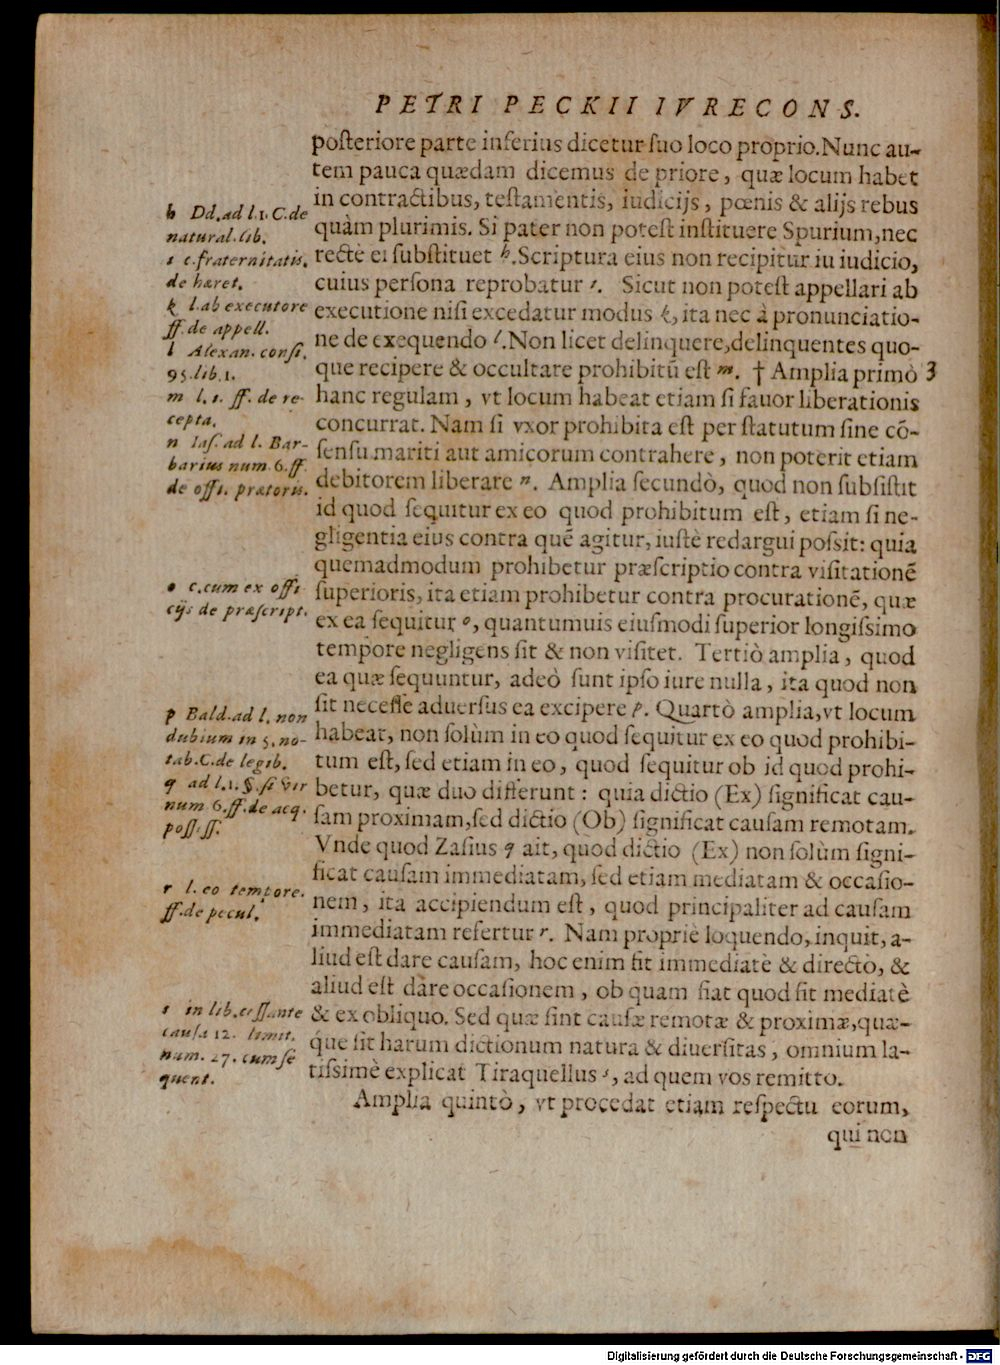 PETRI PECKII IVRECONS.
posteriore parte inferius dicetur suo loco proprio. Nunc au-
tem pauca quædam dicemus de priore, quæ locum habet
in contractibus, testamentis, iudicijs, pœnis & alijs rebus
quàm plurimis. Si pater non potest instituere Spurium, nec
rectè ei substituet h. Scriptura eius non recipitur iu iudicio,
cuius persona reprobatur i. Sicut non potest appellari ab
executione nisi excedatur modus k, ita nec à pronunciatio-
ne de exequendo l. Non licet delinquere, delinquentes quo-
que recipere & occultare prohibitũ est m. † Amplia primò 3
hanc regulam, vt locum habeat etiam si fauor liberationis
concurrat. Nam si vxor prohibita est per statutum sine cõ-
sensu mariti aut amicorum contrahere, non poterit etiam
debitorem liberare n. Amplia secundò, quod non subsistit
id quod sequitur ex eo quod prohibitum est, etiam si ne-
gligentia eius contra quẽ agitur, iustè redargui possit: quia
quemadmodum prohibetur præscriptio contra visitationẽ
superioris, ita etiam prohibetur contra procurationẽ, quæ
ex ea sequitur o, quantumuis eiusmodi superior longissimo
tempore negligens sit & non visitet. Tertiò amplia, quod
ea quæ sequuntur, adeò sunt ipso iure nulla, ita quod non
sit necesse aduersus ea excipere p. Quartò amplia, vt locum
habeat, non solùm in eo quod sequitur ex eo quod prohibi-
tum est, sed etiam in eo, quod sequitur ob id quod prohi-
betur, quæ duo differunt: quia dictio (Ex) significat cau-
sam proximam, sed dictio (Ob) significat causam remotam.
Vnde quod Zasius q ait, quod dictio (Ex) non solùm signi-
ficat causam immediatam, sed etiam mediatam & occasio-
nem, ita accipiendum est, quod principaliter ad causam
immediatam refertur r. Nam propriè loquendo, inquit, a-
liud est dare causam, hoc enim fit immediatè & directò, &
aliud est dare occasionem, ob quam fiat quod fit mediatè
& ex obliquo. Sed quæ sint causæ remotæ & proximæ, quæ-
que sit harum dictionum natura & diuersitas, omnium la-
tissimè explicat Tiraquellus s, ad quem vos remitto.
Amplia quintò, vt procedat etiam respectu eorum,
qui non
h Dd. ad l. 1. C. de
natural. lib.
i c. fraternitatis.
de hæret.
k l. ab executore
ff. de appell.
l Alexan. consi.
95. lib. 1.
m l. 1. ff. de re-
cepta.
n Ias. ad l. Bar-
barius num. 6. ff.
de offi. prætoris.
o c. cum ex offi
cijs de præscript.
p Bald. ad l. non
dubium in 5. no-
tab. C. de legib.
q ad l. 1. §. si vir
num 6. ff. de acq.
poss. ff.
r l. eo tempore.
ff. de pecul.
s in lib. cessante
causa 12. limit.
num. 27. cum se
quent.
Digitalisierung gefördert durch die Deutsche Forschungsgemeinschaft - DFG